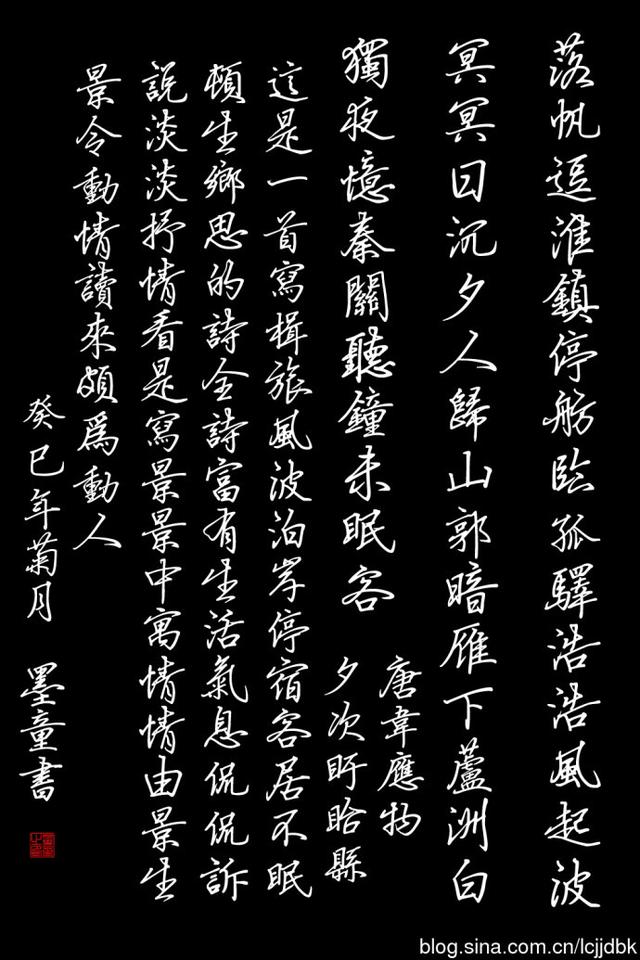 落帆逗淮鎮停舫臨孤驛浩浩風起波
冥冥日沉夕人歸山郭暗雁下蘆洲白
獨夜憶秦關聽鐘未眠客
唐韋應物
夕次盱眙縣
這是一首寫楫旅風波泊岸停宿客居不眠
頓生鄉思的詩全詩富有生活氣息侃侃訴
說淡淡抒情看是寫景景中寓情情由景生
景令動情讀來頗為動人
癸巳年菊月 墨童書
blog.sina.com.cn/lcjjdbk